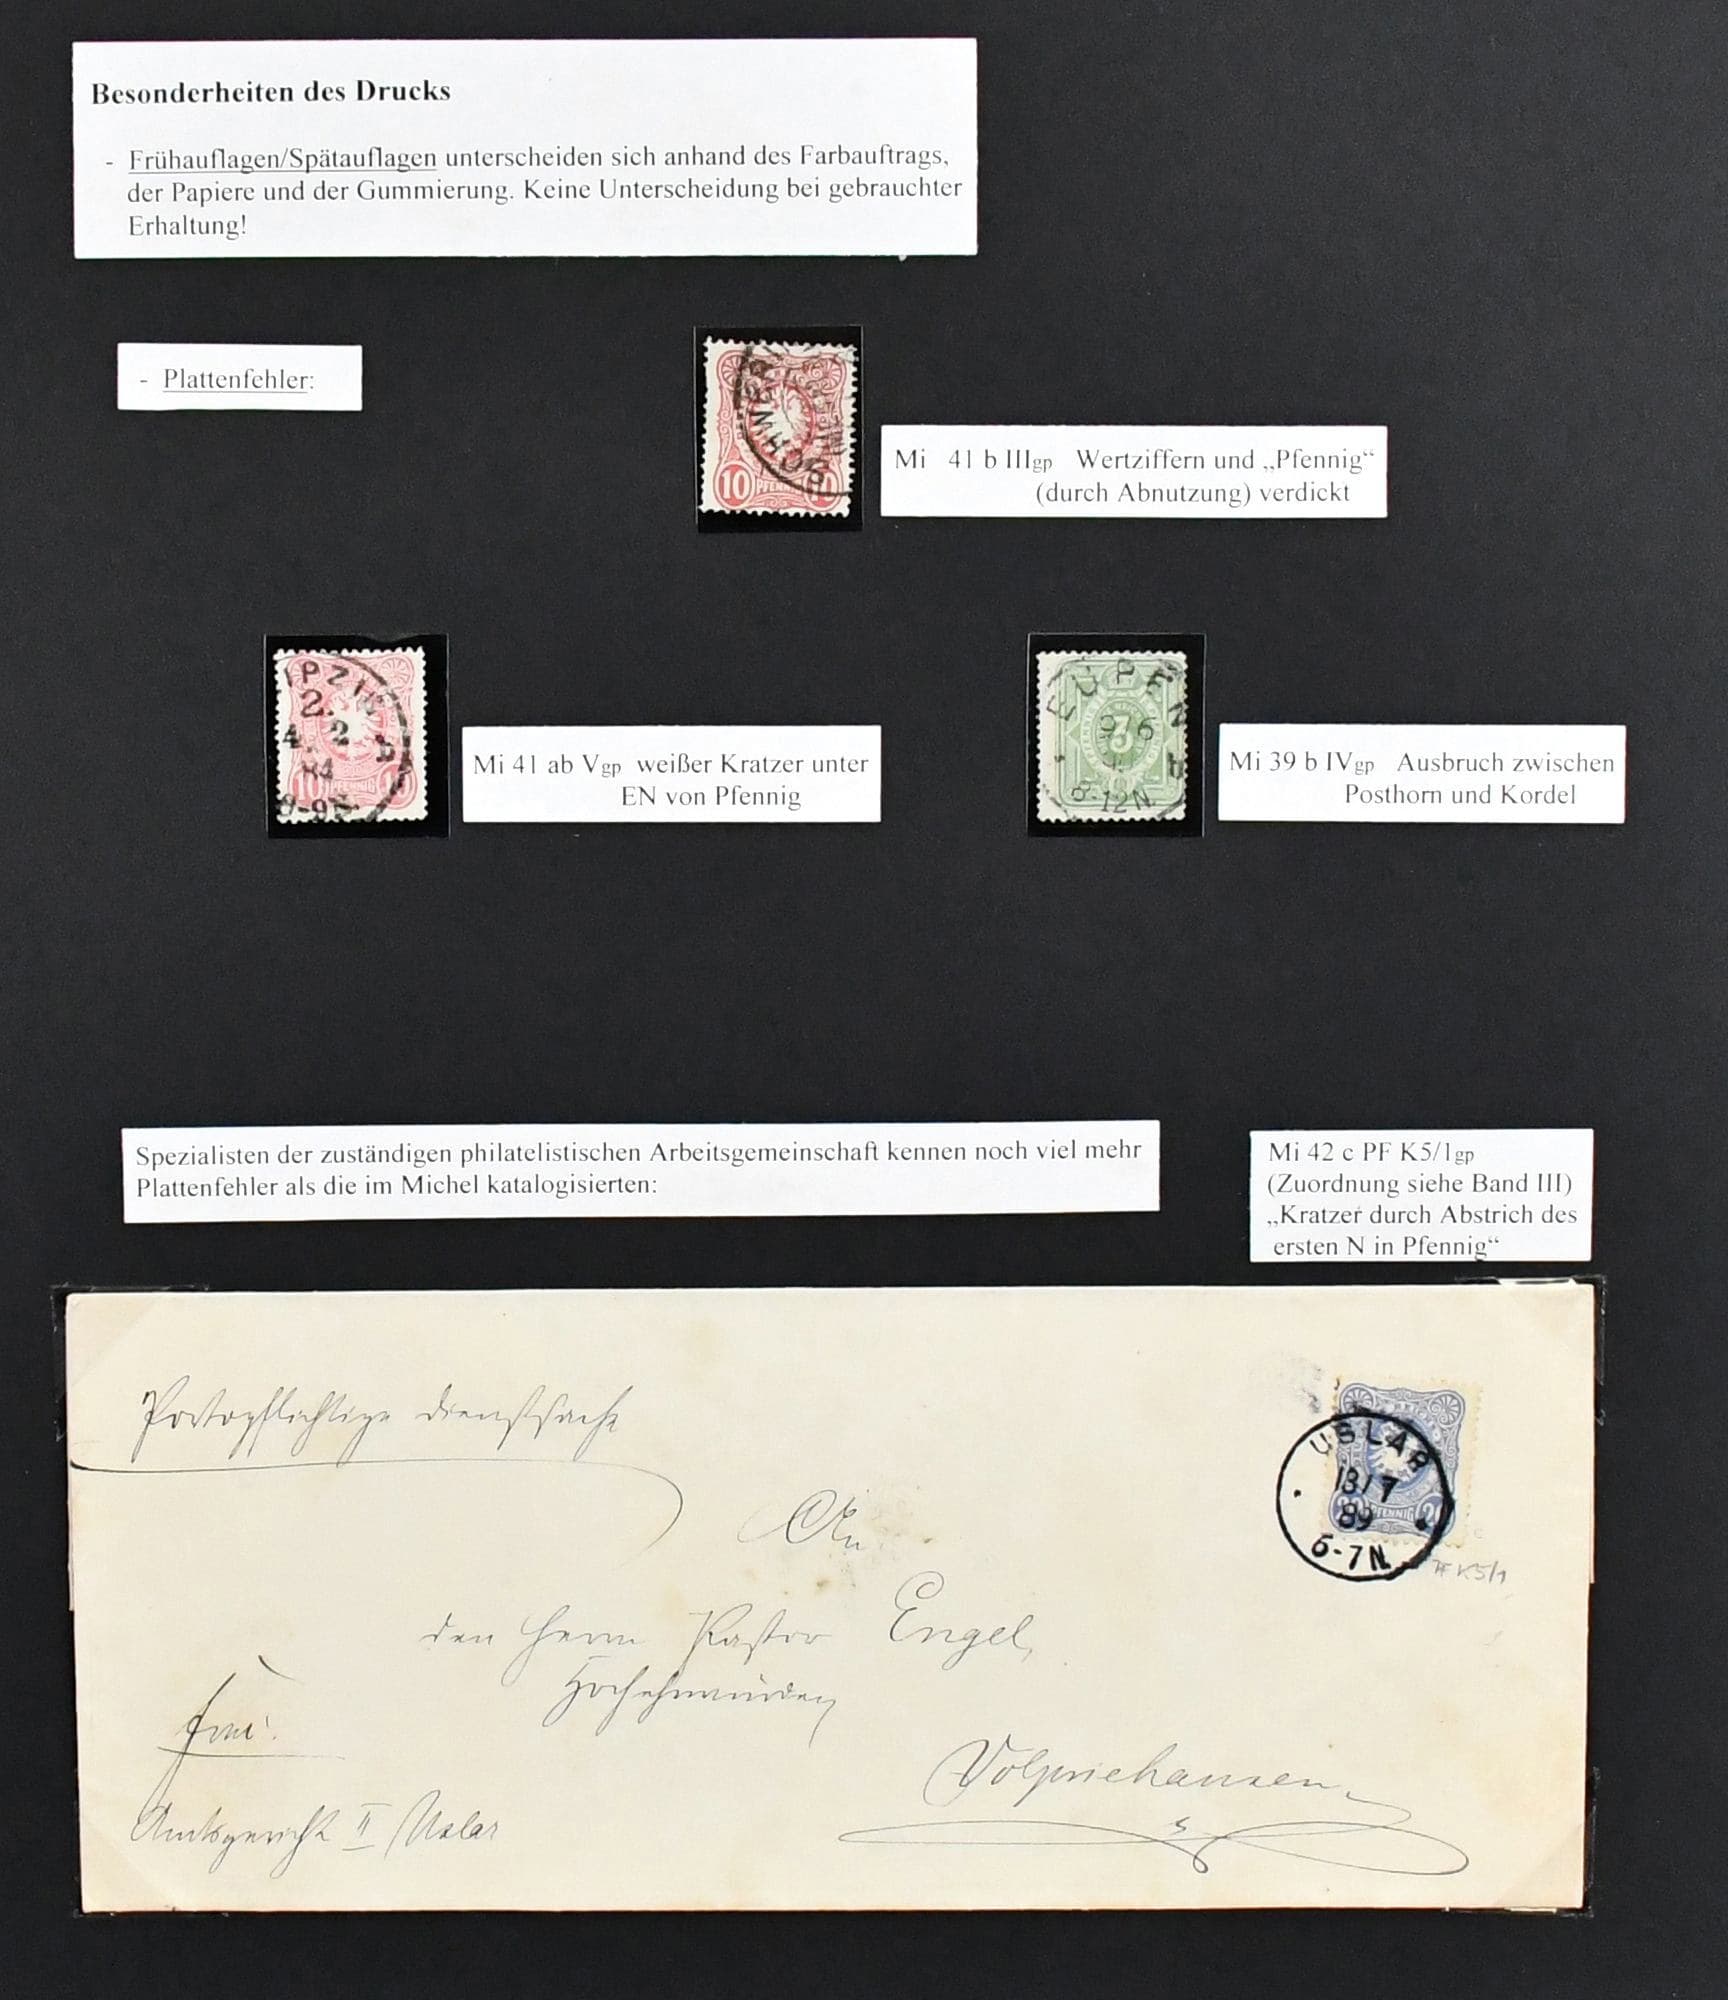 Besonderheiten des Drucks
- Frühauflagen/Spätauflagen unterscheiden sich anhand des Farbauftrags,
der Papiere und der Gummierung. Keine Unterscheidung bei gebrauchter
Erhaltung!
- Plattenfehler:
10 PFENNIG 10
Mi 41 b IIIgp Wertziffern und „Pfennig“
(durch Abnutzung) verdickt
IPZIG
2.
4. 2
84
8-9N.
10 PFENNIG 10
Mi 41 ab Vgp weißer Kratzer unter
EN von Pfennig
EUPEN
9 6
3
b
8-12N.
Mi 39 b IVgp Ausbruch zwischen
Posthorn und Kordel
Spezialisten der zuständigen philatelistischen Arbeitsgemeinschaft kennen noch viel mehr
Plattenfehler als die im Michel katalogisierten:
Mi 42 c PF K5/1gp
(Zuordnung siehe Band III)
„Kratzer durch Abstrich des
ersten N in Pfennig“
Portopflichtige Dienstsache
USLAR
13/7
89
6-7N.
PFENNIG 20
K5/1
An
den Herrn Pastor Engel,
Hochehrwürden
frei.
Volpriehausen
Amtsgericht II Uslar